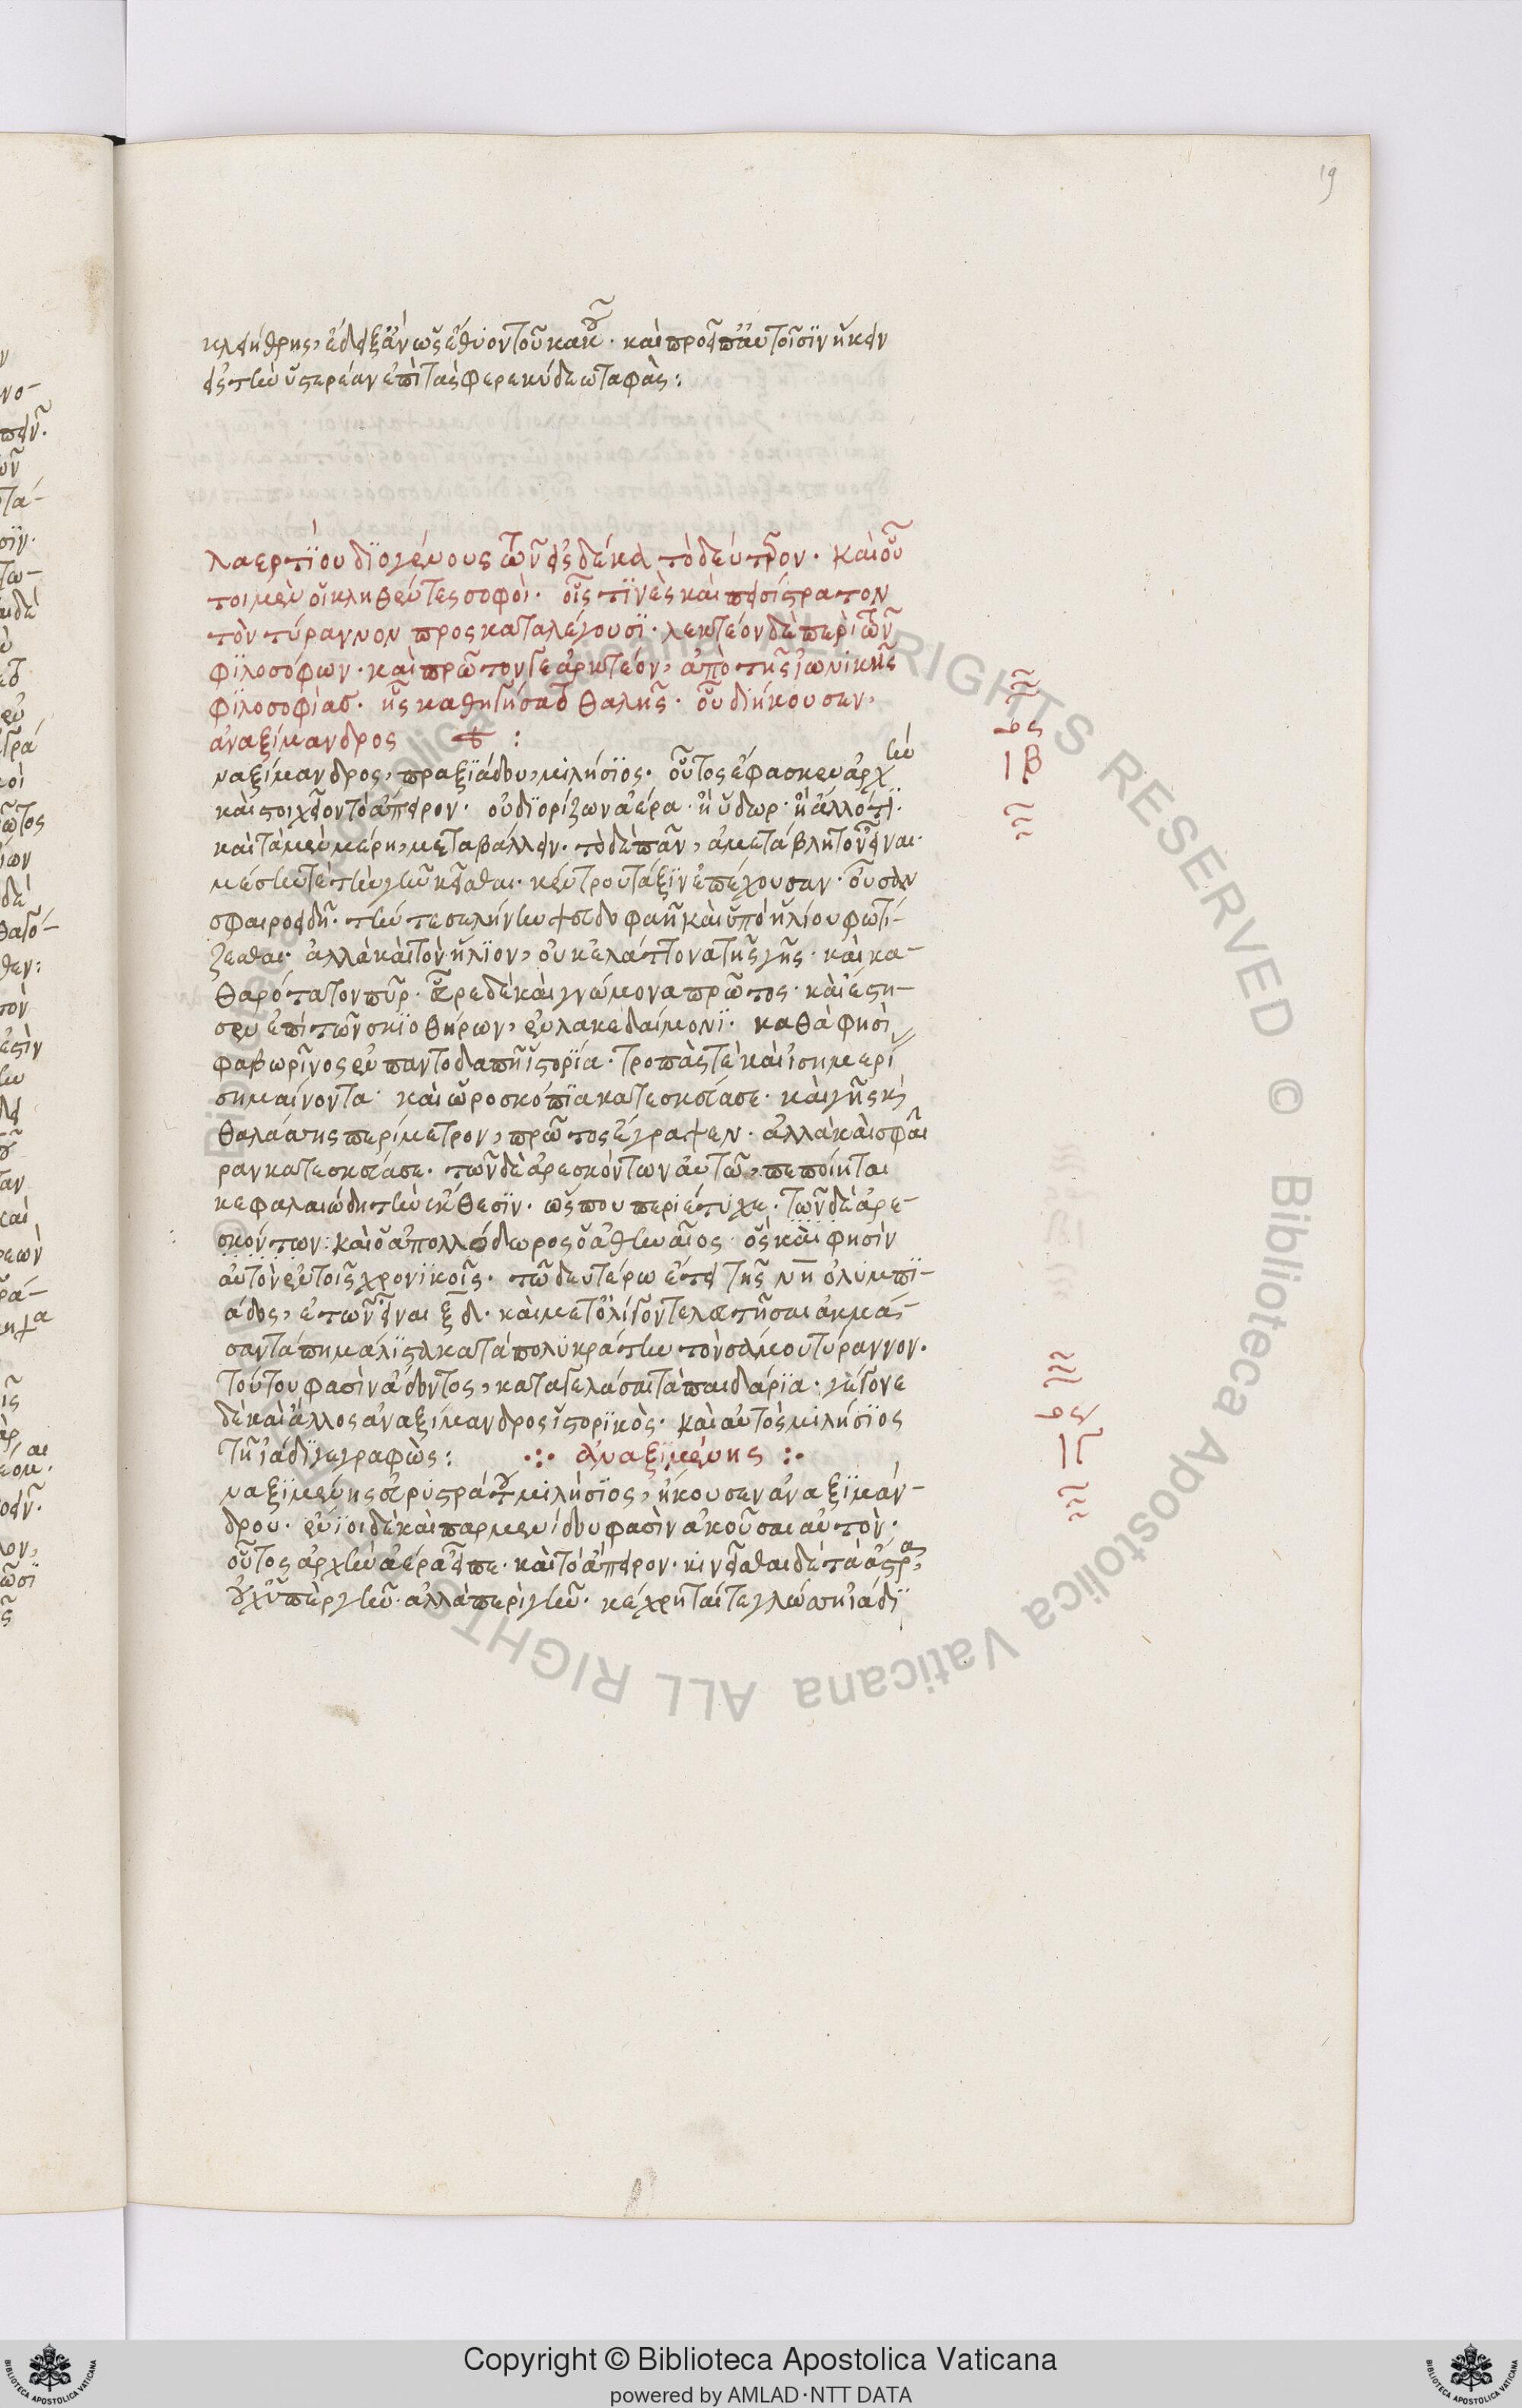 19
κλείθρης, ἔδειξεν ὡς ἔθυον τοῦ κακοῦ. καὶ προσεῖπ' αὐτοῖσιν ἥκειν
εἰς τὴν ὑστερέαν ἐπὶ τὰς φερεκύδεω ταφὰς:
λαερτίου διογένους τῶν εἰς δέκα τὸ δεύτερον. καὶ οὗ
τοι μὲν οἱ κληθέντες σοφοὶ. οἷς τινὲς καὶ πεισίστρατον
τὸν τύραννον προσκαταλέγουσι. λεκτέον δὲ περὶ τῶν
φιλοσόφων. καὶ πρῶτόν γε ἀρκτέον, ἀπὸ τῆς ἰωνικῆς
φιλοσοφίας. ἧς καθηγήσατο θαλῆς. οὗ διήκουσεν,
ἀναξίμανδρος :
ναξίμανδρος, πραξιάδου, μιλήσιος. οὗτος ἔφασκεν ἀρχὴν
καὶ στοιχεῖον τὸ ἄπειρον. οὐ διορίζων ἀέρα. ἢ ὕδωρ. ἢ ἄλλό τι.
καὶ τὰ μὲν μέρη, μεταβάλλειν. τὸ δὲ πᾶν, ἀμετάβλητον εἶναι.
μέσην τὲ τὴν γῆν κεῖσθαι. κέντρου τάξιν ἐπέχουσαν. οὖσαν
σφαιροειδῆ. τήν τε σελήνην ψευδοφαῆ καὶ ὑπὸ ἡλίου φωτί-
ζεσθαι. ἀλλὰ καὶ τὸν ἥλιον, οὐκ ἐλάττονα τῆς γῆς. καὶ κα-
θαρότατον πῦρ. εὗρε δὲ καὶ γνώμονα πρῶτος. καὶ ἔστη-
σεν ἐπὶ τῶν σκιοθήρων, ἐν λακεδαίμονι. καθὰ φησὶ
φαβωρῖνος ἐν παντοδαπῆ ἱστορία. τροπὰς τὲ καὶ ἰσημερί
σημαίνοντα. καὶ ὡροσκόπια κατεσκεύασε. καὶ γῆς κὶ
θαλάσσης περίμετρον, πρῶτος ἔγραψεν. ἀλλὰ καὶ σφαῖ
ραν κατεσκεύασε. τῶν δὲ ἀρεσκόντων αὐτῶ, πεποίηται
κεφαλαιώδη τὴν ἔκθεσιν. ὥς που περιέτυχε. τῶν δὲ ἀρε-
σκόντων: καὶ ὁ ἀπολλόδωρος ὁ ἀθηναῖος. ὃς καὶ φησὶν
αὐτὸν ἐν τοῖς χρονικοῖς. τῶ δευτέρω ἔτει τῆς νη ὀλυμπι-
άδος, ἐτῶν εἶναι ξδ. καὶ μετ' ὀλίγον τελευτῆσαι ἀκμά-
σαντά πη μάλιστα κατὰ πολυκράτην τὸν σάμου τύραννον.
τούτου φασὶν ἄδοντος, καταγελάσαι τὰ παιδάρια. γέγονε
δὲ καὶ ἄλλος ἀναξίμανδρος ἱστορικὸς. καὶ αὐτὸς μιλήσιος
τῆ ἰάδι γεγραφὼς: ἀναξιμένης :
ναξιμένης εὐρυστράτου μιλήσιος, ἤκουσεν ἀναξιμάν-
δρου. ἔνιοι δὲ καὶ παρμενίδου φασὶν ἀκοῦσαι αὐτὸν.
οὗτος ἀρχὴν ἀέρα εἶπε. καὶ τὸ ἄπειρον. κινεῖσθαι δὲ τὰ ἄστρα,
οὐχ ὑπὲρ γῆν. ἀλλὰ περὶ γῆν. κέχρηταί τε γλώσση ἰάδι
ΙΒ
ΙΓ
© Biblioteca Apostolica Vaticana ALL RIGHTS RESERVED © Biblioteca Apostolica Vaticana ALL RIGHTS
Copyright © Biblioteca Apostolica Vaticana
powered by AMLAD·NTT DATA